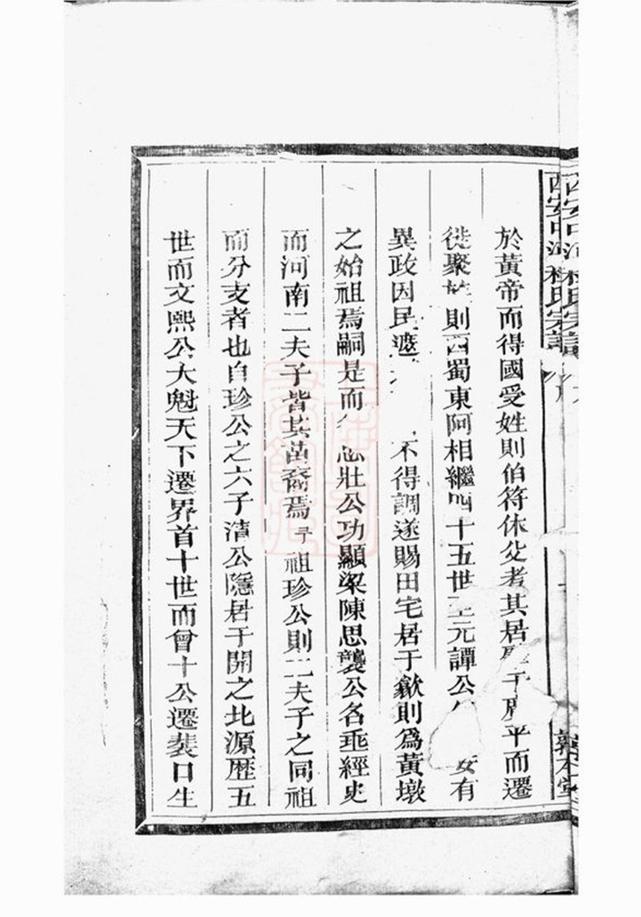 於黃帝而得國受姓則伯符休父者其居平而遷
徙聚族則西蜀東阿相繼四十五世至元譚公安有
異政因民遮不得調遂賜田宅居于歙則爲黃墩
之始祖焉嗣是而忠壯公功顯梁陳思襲公名垂經史
而河南二夫子皆其苗裔焉祖珍公則二夫子之同祖
而分支者也自珍公之六子淸公隱居于開之北源歴五
世而文熙公大魁天下遷界首十世而曾十公遷裴口生